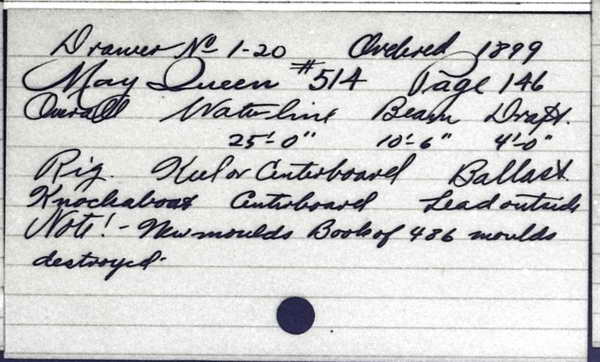 Drawer No 1-20 Ordered 1899
May Queen #514 Page 146
Overall Waterline Beam Draft.
25'-0" 10'-6" 4'-0"
Rig. Keel or Centerboard Ballast
Knockabout Centerboard Lead outside
Note! - New moulds Book of 486 moulds
destroyed-